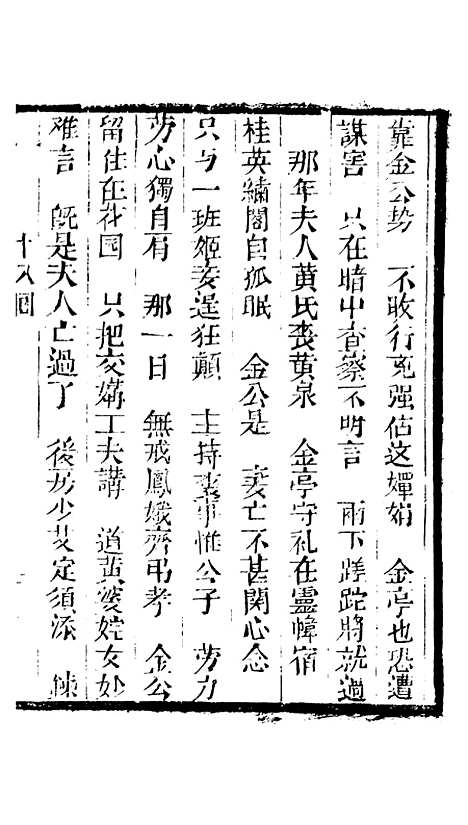 靠金公势　不敢行兇强佔这嬋娟　金亭也恐遭
謀害　只在暗中查察不明言　兩下蹉跎將就過
那年夫人黄氏丧黄泉　金亭守礼在靈幃宿
桂英繡閣自孤眠　金公是　妻亡不甚関心念
只与一班姬妾逞狂顛　主持丧事惟公子　劳力
劳心獨自肩　那一日　無戒鳳娥齊弔孝　金公
留住在花园　只把交媾工夫講　道黄婆姹女妙
难言　既是夫人亡過了　後房少艾定須添
十八囬